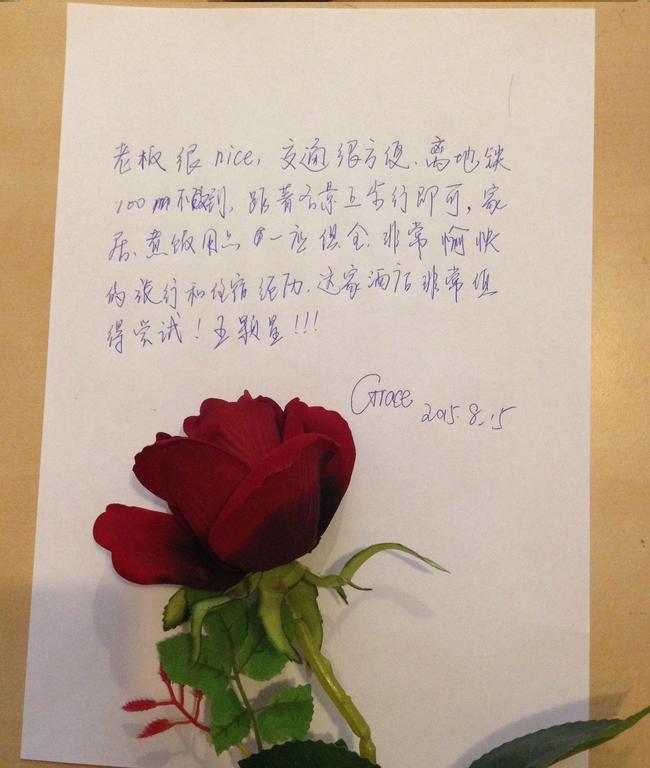 老板很nice,交通很方便.离地铁
100m不到,距著名景点步行即可,家
居、煮饭用品一应俱全.非常愉快
的旅行和住宿经历.这家酒店非常值
得尝试!五颗星!!!
Grace
2015.8.15